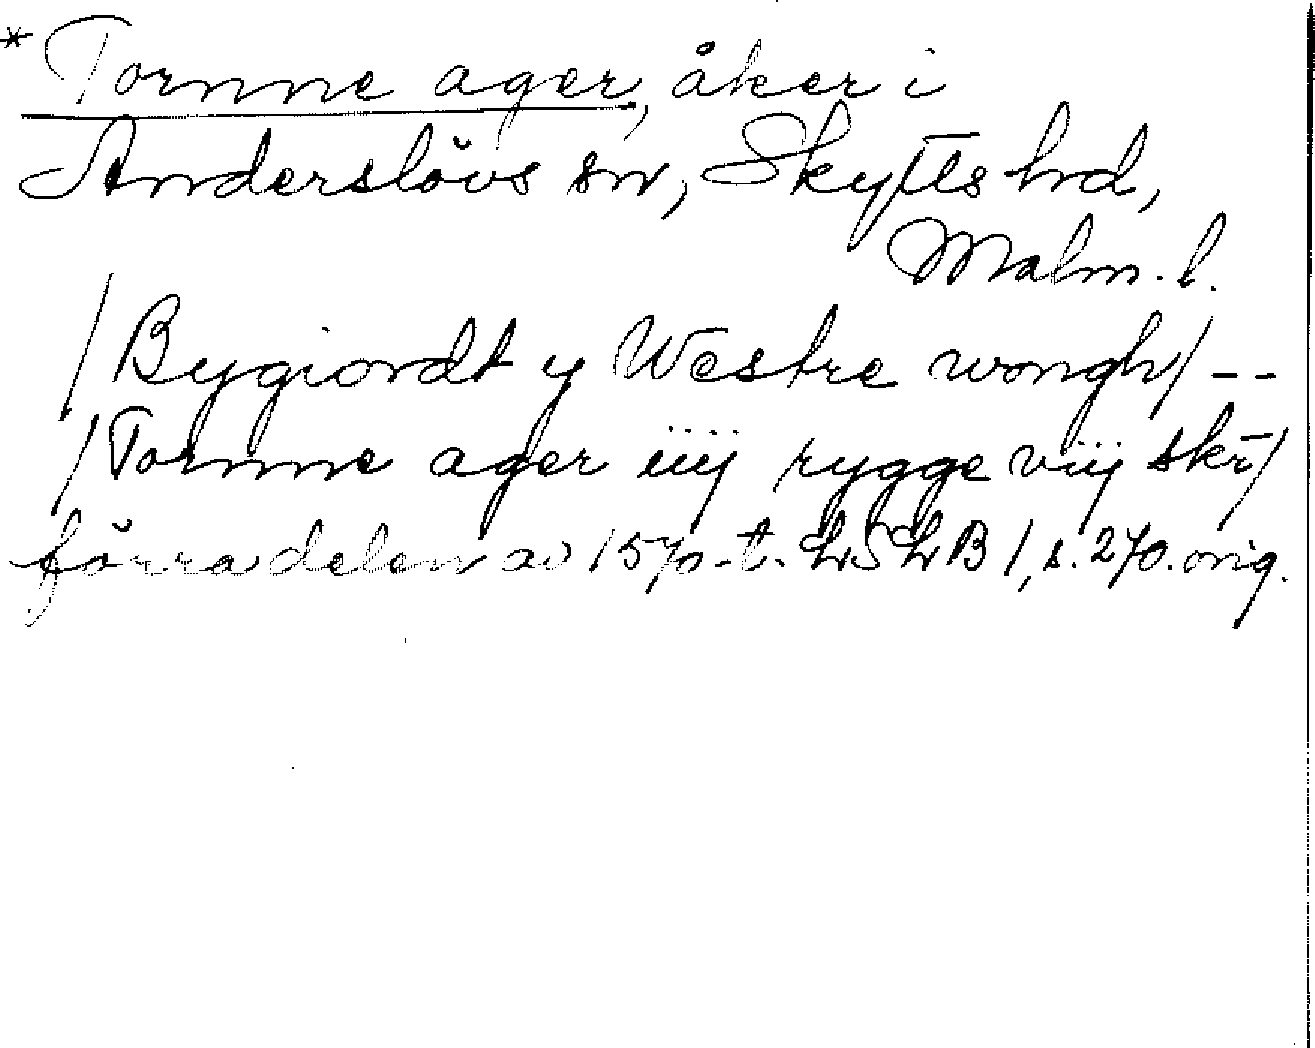 * Tornne ager, åker i
Anderslövs sn, Skytts hd,
Malm. l.
/Bygiordt y Westre wongh/ --
/Tornne ager iiij rygge viij skr/
förra delen av 1570-t. LSLB 1, s. 270. orig.